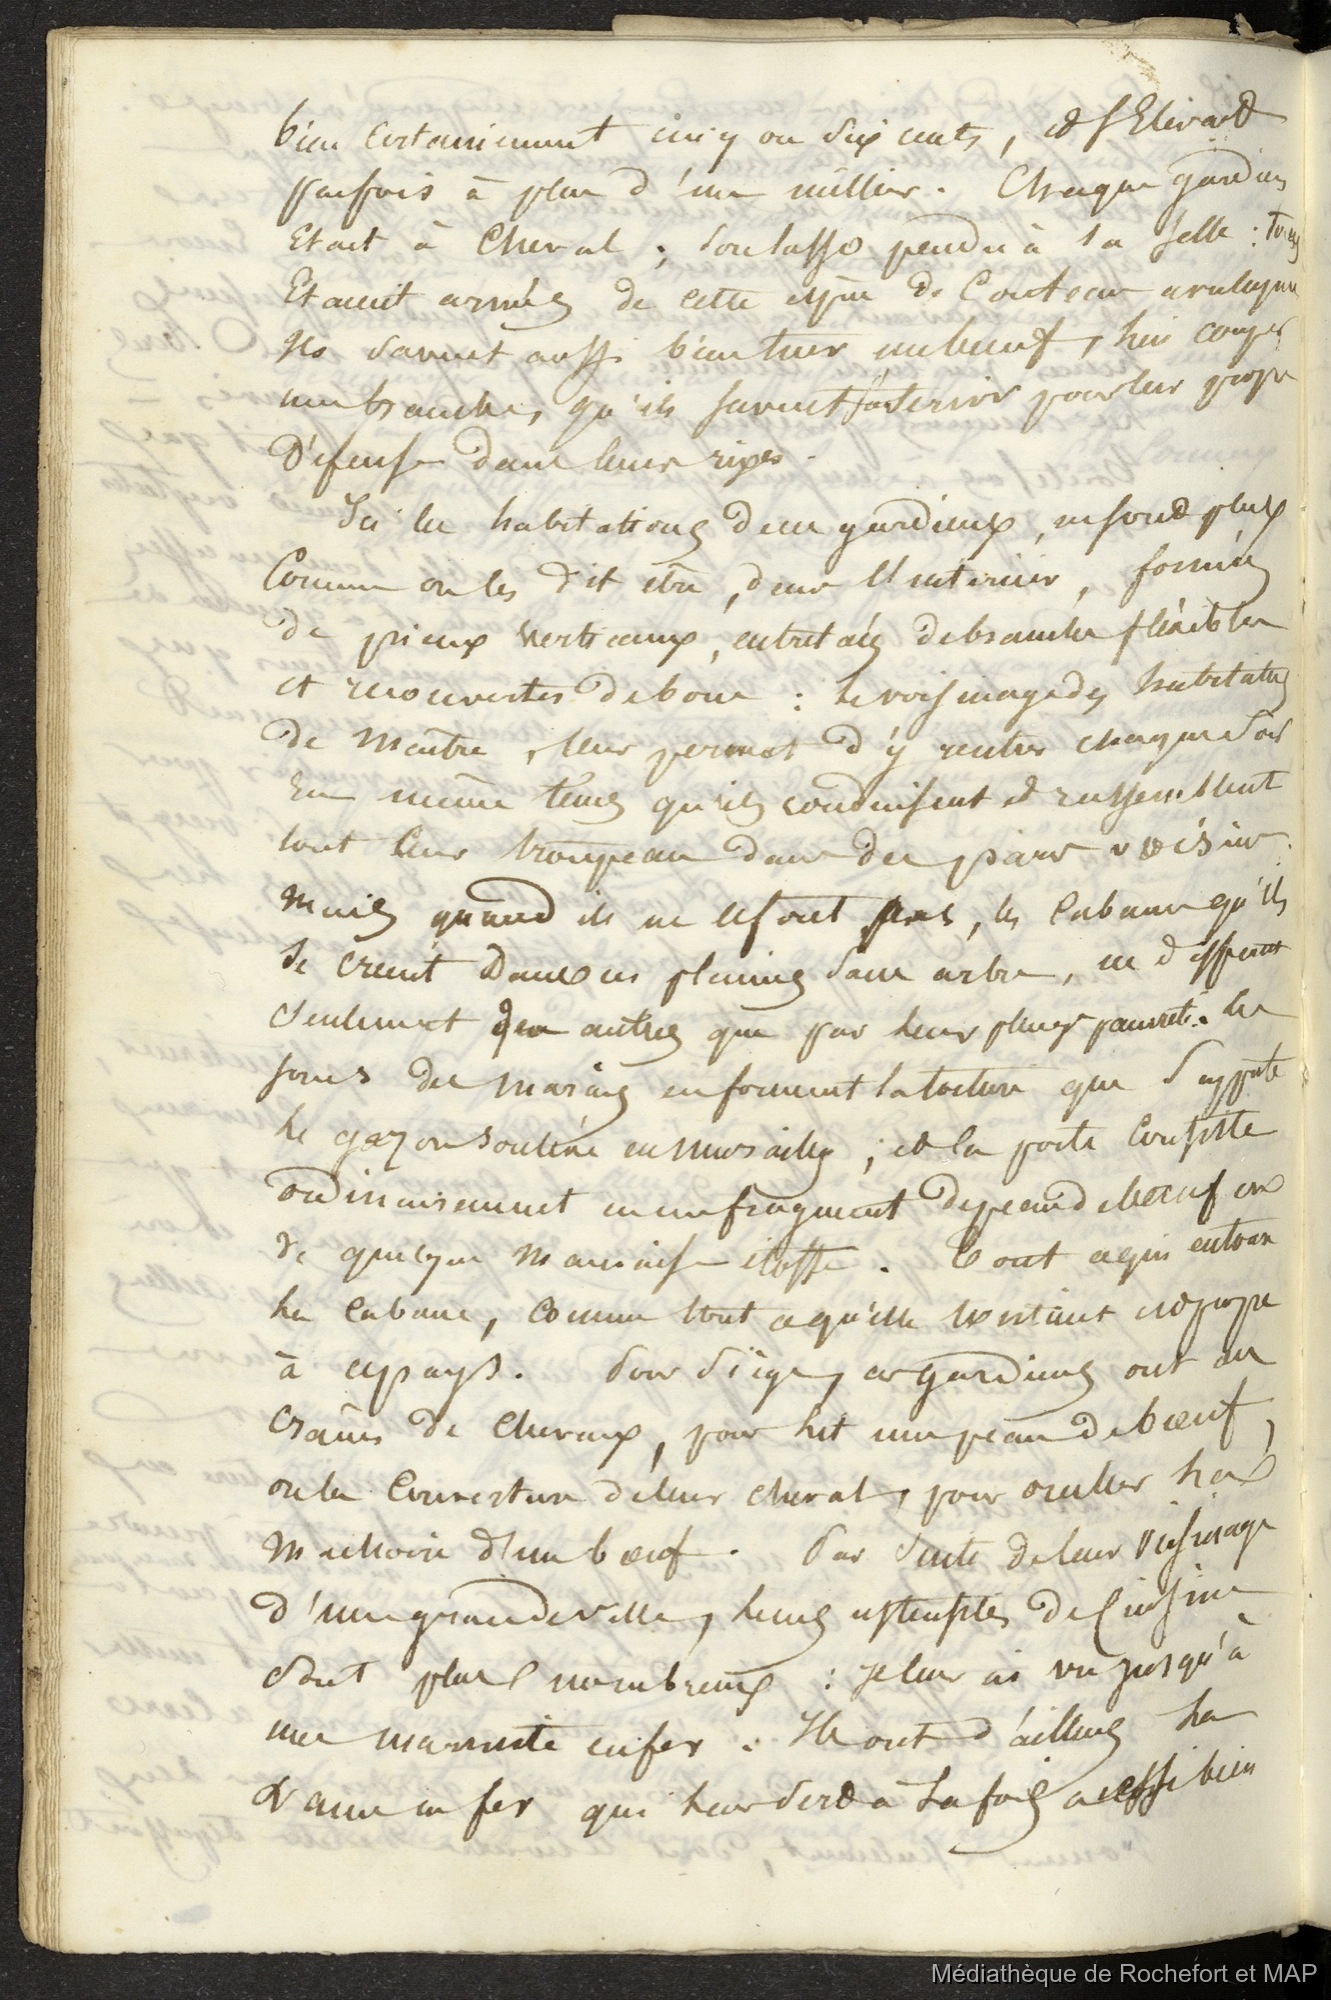 bien certainement cinq ou six cents, et s'Elevait
parfois à plus d'un millier. Chaque gardien
Etait à Cheval ; son lasso pendu à sa selle : tous
Etaient armés de cette espèce de Couteau avec lequel
ils savent aussi bien tuer un bœuf, lui couper
une branche, qu'ils savent s'en servir pour leur propre
Défense dans leurs rixes.
Ici les habitations de ces gardiens, ne sont plus
Comme on les dit être, dans l'intérieur, formées
de pieux verticaux, entrelacés de branches flexibles
et recouvertes de boue : le voisinage des habitations
de Maître, leur permet d'y rentrer chaque soir
En même tems qu'ils conduisent et rassemblent
tout leur troupeau dans des parcs voisins.
Mais quand ils ne le font pas, les Cabanes qu'ils
se créent Dans ces plaines sans arbre, ne diffèrent
seulement des autres que par leur plus pauvreté. Les
joncs des marais en forment la toiture que supporte
le gazon soulevé en murailles ; et la porte Consiste
ordinairement en un fragment de peau de bœuf ou
de quelque Mauvaise étoffe. Tout ce qui entoure
la Cabane, Comme tout ce qu'elle contient est propre
à ce pays. Pour sièges, ces gardiens ont des
Crânes de Chevaux, pour lit une peau de bœuf,
ou la Couverture de leur cheval, pour oreiller la
Machoire d'un bœuf. Par suite de leur voisinage
d'une grande ville, leurs ustensiles de Cuisine
sont plus nombreux : je leur ai vu jusqu'à
une marmite en fer. Ils ont d'ailleurs la
en fer qui leur sert à la fois aussi bien
Médiathèque de Rochefort et MAP